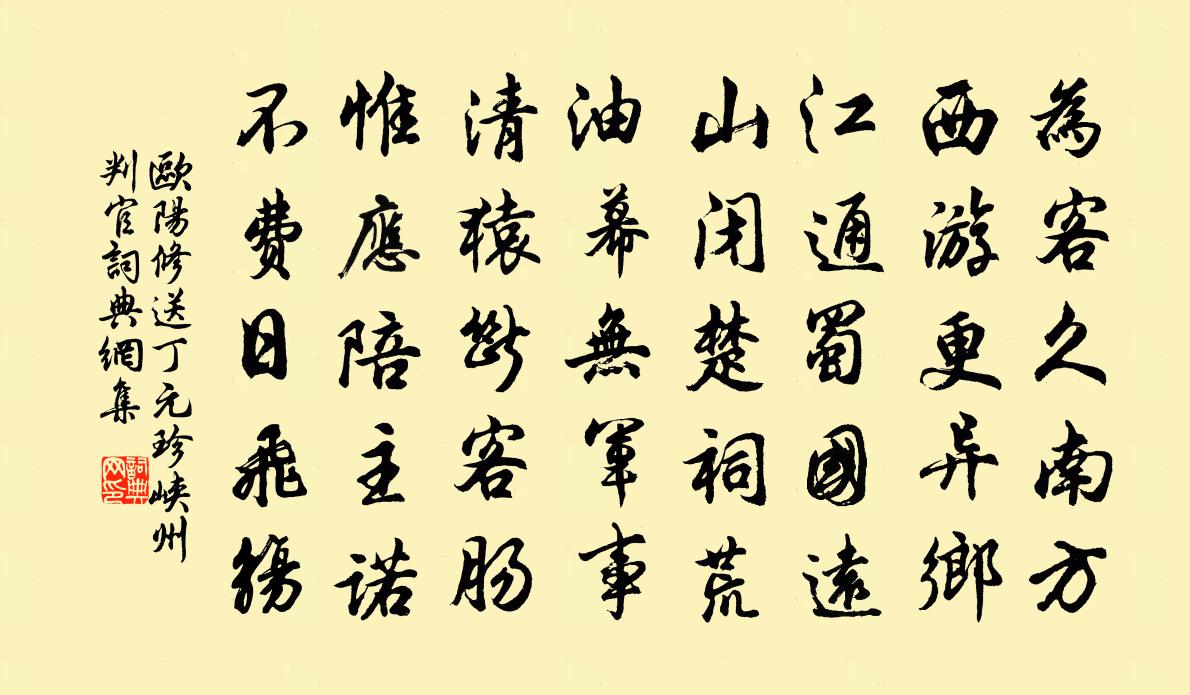 為客久南方
西游更异鄉
江通蜀國遠
山闭楚祠荒
油幕無軍事
清猿斷客肠
惟應陪主诺
不費日飛觴
歐陽修送丁元珍峽州
判官詞典網集
詞典
网印